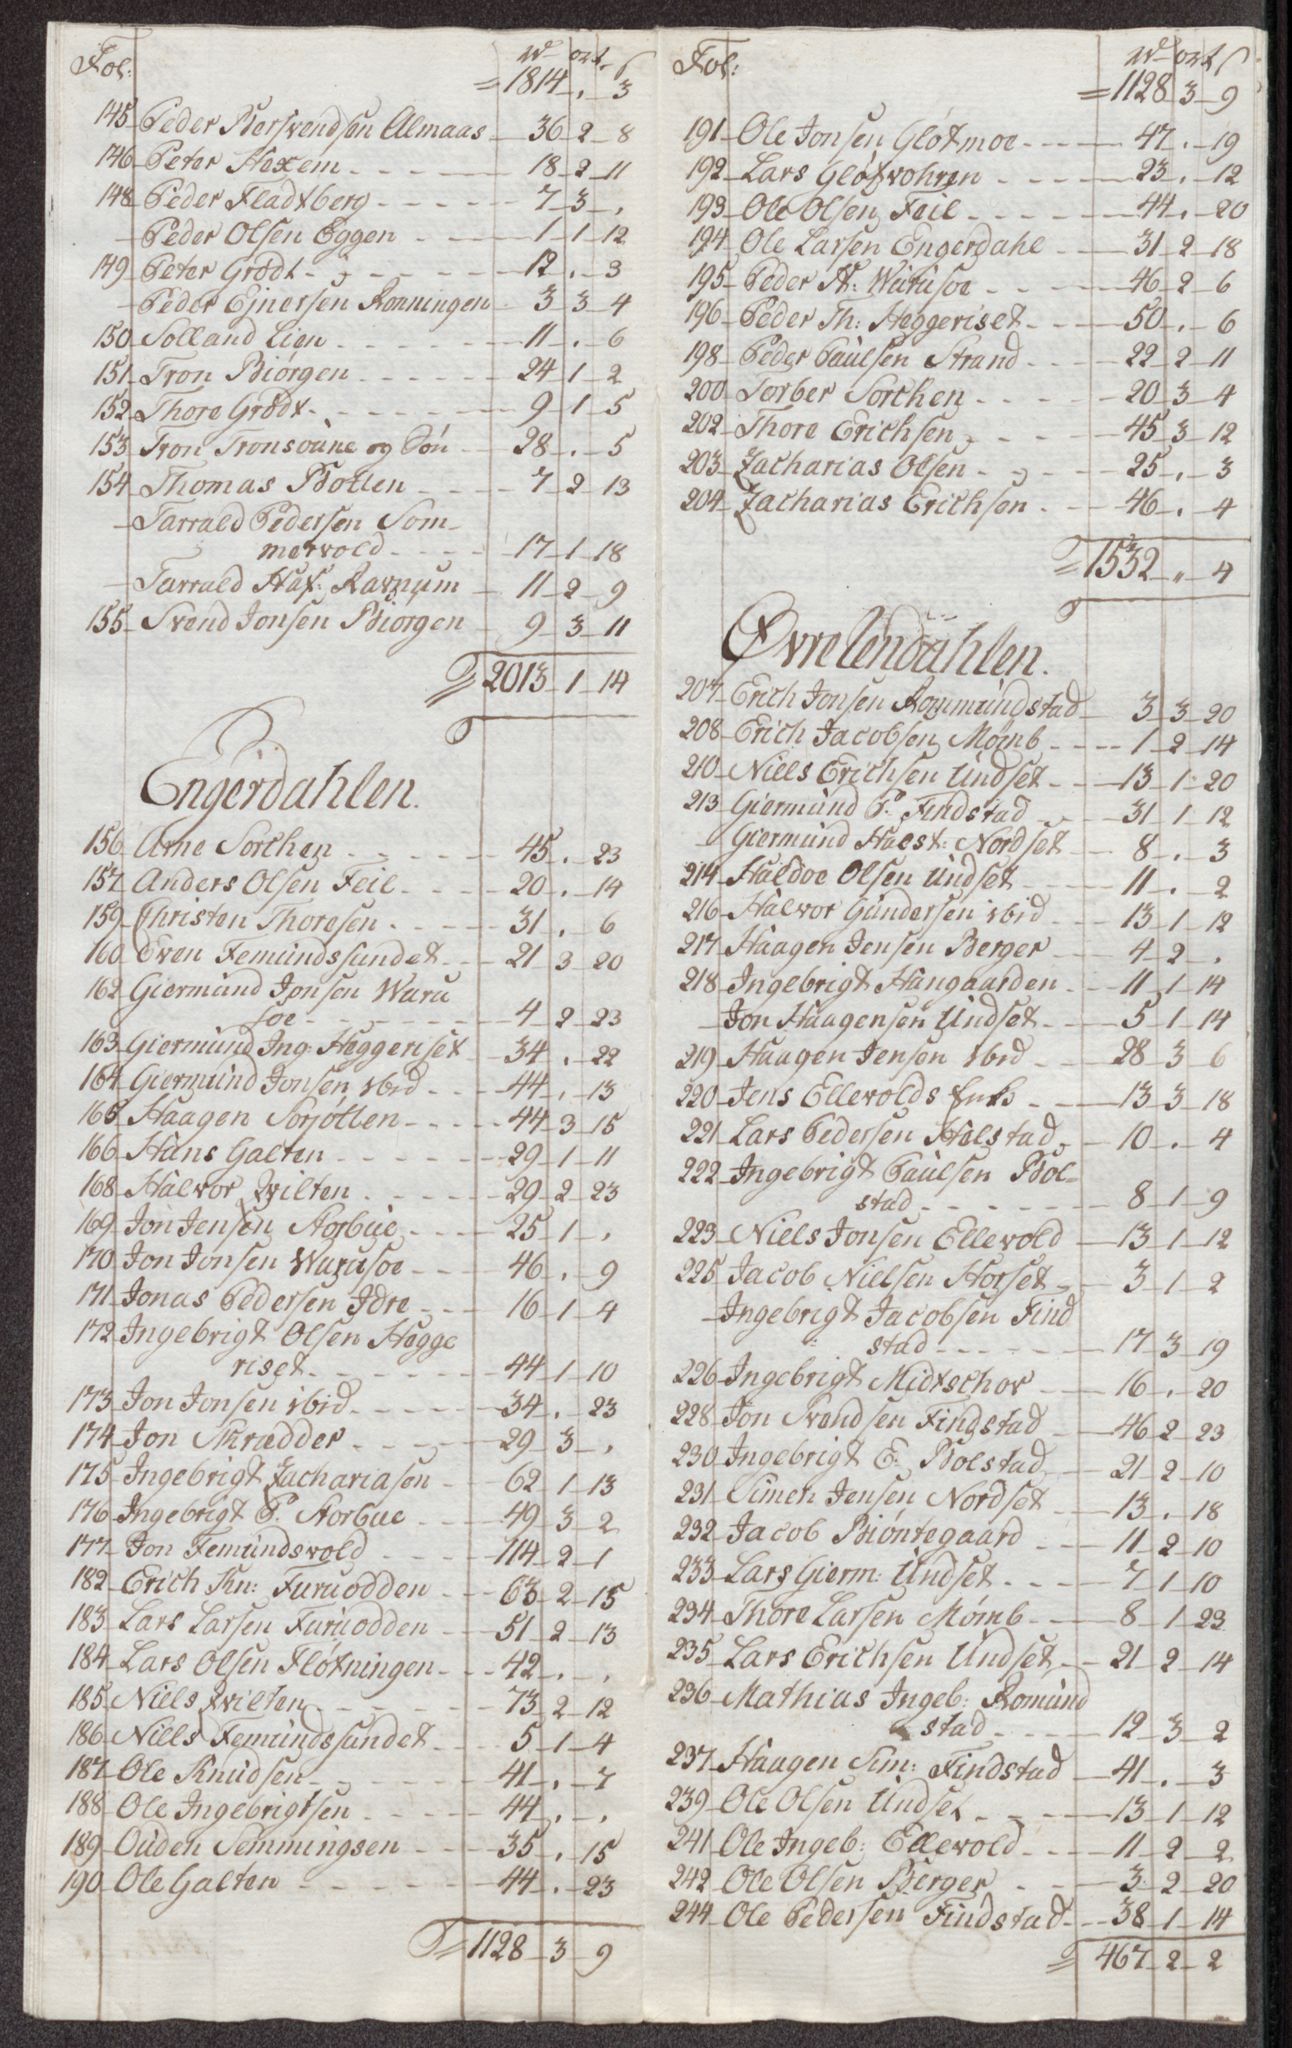 Fol: rd ort ſ
= 1814 . 3
145 Peder Bersvendsen Almaas 36 2 8
146 Peter Hexem 18 2 11
148 Peder Fladtberg 7 3 .
– Peder Olsen Eggen 1 1 12
149 Peter Grødt 12 . 3
– Peder Ejnersen Rønningen 3 3 4
150 Solland Lien 11 . 6
151 Tron Biørgen 24 1 2
152 Thore Grødt 9 1 5
153 Tron Tronsoune og Søn 28 . 5
154 Thomas Botten 7 2 13
– Tarrald Pedersen Som-
mervold 17 1 18
– Tarrald Haf: Ravnum 11 2 9
155 Svend Jonsen Biørgen 9 3 11
2013 1 14
Engerdahlen.
156 Arne Sorchen 45 . 23
157 Anders Olsen Feil 20 . 14
159 Christen Thoresen 31 . 6
160 Even Femundssundet 21 3 20
162 Giermund Jonsen Waru
soe 4 2 23
163 Giermund Ing: Heggeriset 34 . 22
164 Giermund Jonsen ibid 44 . 13
165 Haagen Sorjøtten 44 3 15
166 Hans Galten 29 1 11
168 Halvor Qvilten 29 2 23
169 Jon Jensen Storbue 25 1 .
170 Jon Jonsen Warusoe 46 . 9
171 Jonas Pedersen Idre 16 1 4
172 Ingebrigt Olsen Hegge
riset 44 1 10
173 Jon Jonsen ibid 34 . 23
174 Jon Skrædder 29 3 .
175 Ingebrigt Zachariasen 62 1 13
176 Ingebrigt P. Storbue 49 3 2
177 Jon Femundsvold 114 2 1
182 Erich Kn: Furuodden 63 2 15
183 Lars Larsen Furuodden 51 2 13
184 Lars Olsen Fløtningen 42 . .
185 Niels Qvilten 73 2 12
186 Nills Femundssundet 5 1 4
187 Ole Knudsen 41 . 7
188 Ole Ingebrigtsen 44 . .
189 Ouden Semmingsen 35 . 15
190 Ole Galten 44 . 23
1128 3 9
Fol: rd ort ſ
= 1128 3 9
191 Ole Jonsen Gløtmoe 47 . 19
192 Lars Gløtvohren 23 . 12
193 Ole Olsen Feil 44 . 20
194 Ole Larsen Engerdahl 31 2 18
195 Peder H: Warusoe 46 2 6
196 Peder Th: Heggeriset 50 . 6
198 Peder Paulsen Strand 22 2 11
200 Torber Sorchen 20 3 4
202 Thore Erichsen 45 3 12
203 Zacharias Olsen 25 . 3
204 Zacharias Erichsen 46 . 4
1532 " 4
Øvre Rendahlen.
207 Erich Jonsen Rommundstad 3 3 20
208 Erich Jacobsen Mømb 1 2 14
210 Niels Erichsen Undset 13 1 20
213 Giermund P. Findstad 31 1 12
– Giermund Halst: Nordset 8 . 3
214 Haldoe Olsen Undset 11 . 2
216 Halvor Gundersen ibid 13 1 12
217 Haagen Jensen Berger 4 2 .
218 Ingebrigt Haugaarden 11 1 14
– Jon Haagensen Undset 5 1 14
219 Haagen Jensen ibid 28 3 6
220 Jens Ellevolds Enke 13 3 18
221 Lars Pedersen Holstad 10 . 4
222 Ingebrigt Paulsen Bol-
stad 8 1 9
223 Niels Jonsen Ellevold 13 1 12
225 Jacob Nielsen Horset 3 1 2
– Ingebrigt Jacobsen Find
stad 17 3 19
226 Ingebrigt Midtschov 16 . 20
228 Jon Svendsen Findstad 46 2 23
230 Ingebrigt E: Bolstad 21 2 10
231 Simen Jensen Nordset 13 . 18
232 Jacob Biøntegaard 11 2 10
233 Lars Gierm: Undset 7 1 10
234 Thore Larsen Mømb 8 1 23
235 Lars Erichsen Undset 21 2 14
236 Mathias Ingeb: Romund
stad 12 3 2
237 Haagen Sim: Findstad 41 . 3
239 Ole Olsen Undset 13 1 12
241 Ole Ingeb: Ellevold 11 2 2
242 Ole Olsen Berger 3 2 20
244 Ole Pedersen Findstad 38 1 14
467 2 2